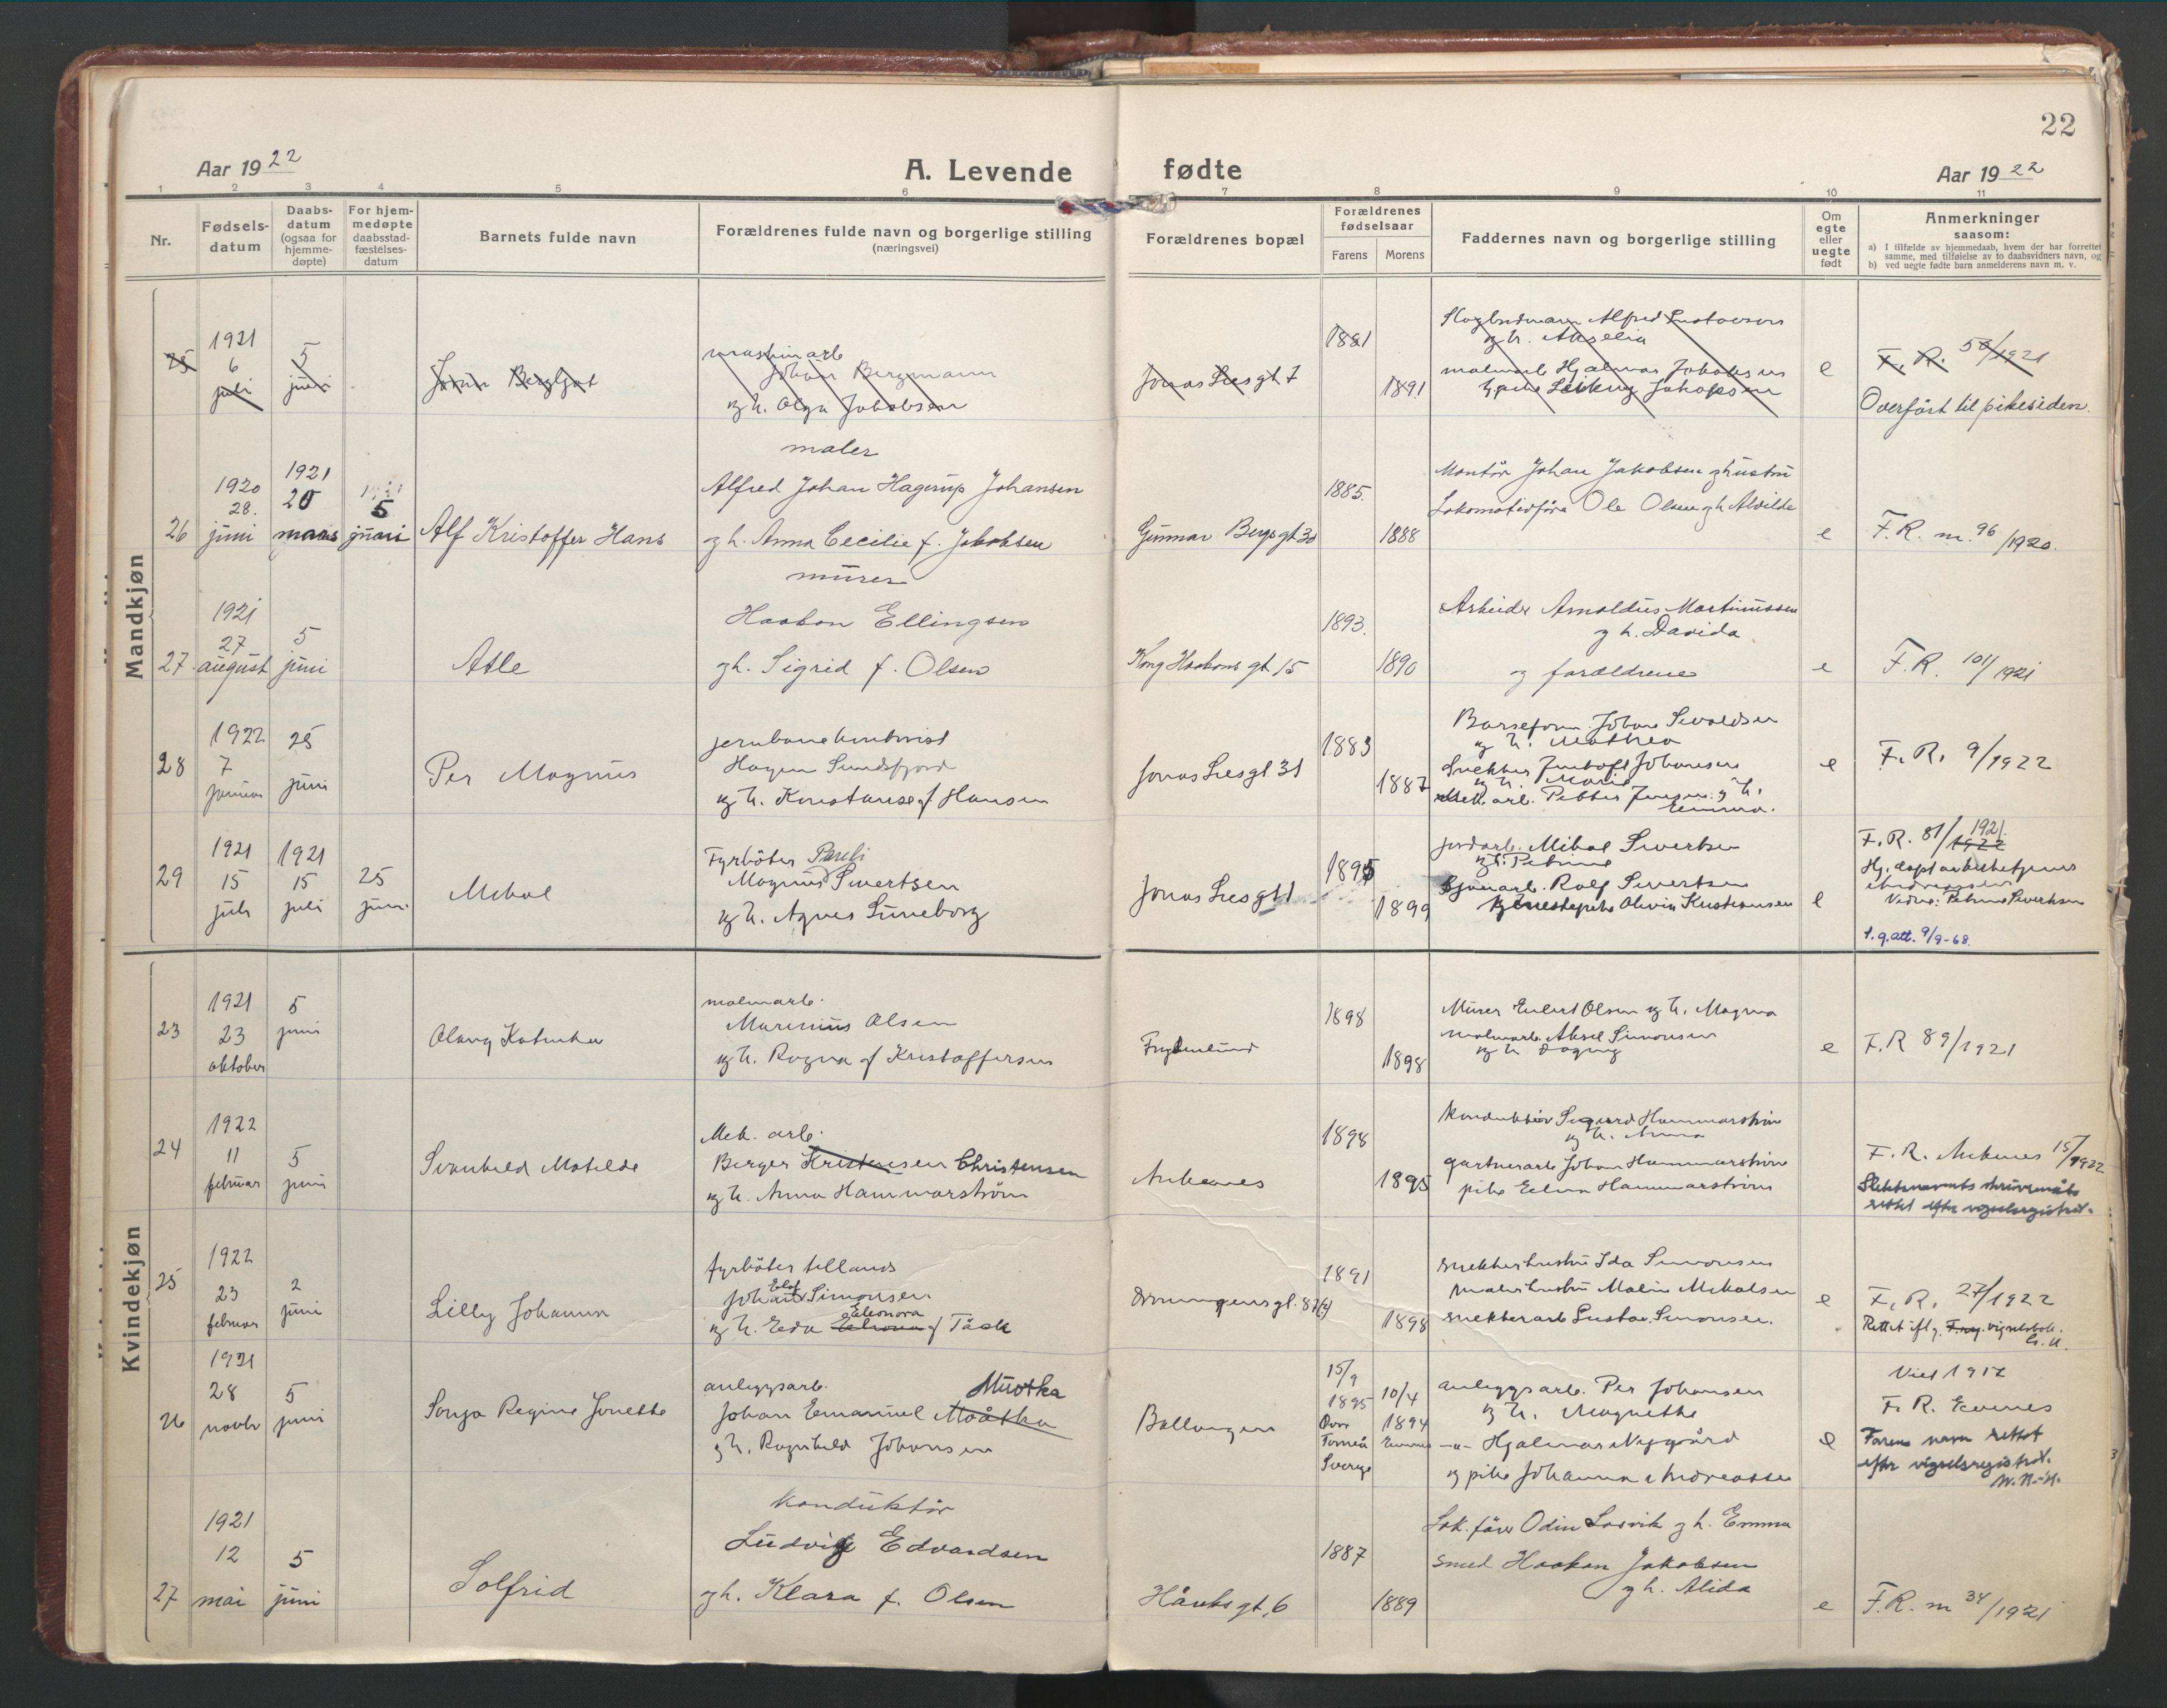 22
Aar 1922
A. Levende fødte
Aar 1922
1 2 3 4 5 6 7 8 9 10 11
Nr.
Fødsels-
datum
Daabs-
datum
(ogsaa for
hjemme-
døpte)
For hjem-
medøpte
daabsstad-
fæstelses-
datum
Barnets fulde navn
Forældrenes fulde navn og borgerlige stilling
(næringsvei)
Forældrenes bopæl
Forældrenes
fødselsaar
Farens Morens
Faddernes navn og borgerlige stilling
Om
egte
eller
uegte
født
Anmerkninger
saasom:
a) I tilfælde av hjemmedaab, hvem der har forrettet
samme, med tilføielse av to daabsvidners navn, og
b) ved uegte fødte barn anmelderens navn m. v.
Mandkjøn
25
1921
6
juli
5
juni
Bergljot
Johan Bergmann
og h. Olga Jakobsen
Jonas Liesgt 7
1881
1891
Alfred Gustavsen
og h.
malmarb Hjalmar Jakobsen
Jakobsen
e
F. R. 50/1921
Overført til pikesiden.
26
1920
28.
juni
1921
20
mars
5
Alf Kristoffer Hans
maler
Alfred Johan Hagerup Johansen
g h. Anna Cecilie f. Jakobsen
Gunnar Bergsgt 30
1885.
1888
Montør Johan Jakobsen g hustru
Lokomotivføre Ole Olsen g h Alvilde
e
F. R. nr. 96/1920.
27.
1921
27
august
5
juni
Atle
murer
Haakon Ellingsen
g h. Sigrid f. Olsen
Kong Haakons gt 15
1893.
1890
Arbeider Arnoldus Martinussen
g h. Davida
og forældrene
e
F. R. 101/1921
28
1922
7
januar
25
juni
Per Magnus
Hagen Sundsfjord
og h. Konstanse f. Hansen
Jonas Liesgt 31
1883
1887
Johan Sivaldsen
og h. Mathea
Johansen
og h. Marie
arb. Petter Jensen og h.
Emma.
e
F. R. 9/1922
29
1921
15
juli
1921
15
juli
25
juni
Mikal
Fyrbøter
Magnus Sivertsen
og h. Agnes Luneborg
Jonas Liesgt 1
1895
1899
jordarb. Mikal Sivertsen
og h. Petrine
Rolf Sivertsen
Olivia Kristiansen
e
F. R. 81/1921. 1922
Petrine Sivertsen
9/9-68.
Kvindekjøn
23
1921
23
oktober
5
juni
Olaug
malmarb.
Marinius Olsen
og h. Ragna f Kristoffersen
Frydenlund
1898
1898
Murer Olsen og h. Magna
malmarb. Aksel Simonsen
og h Dagny
e
F. R 89/1921
24
1922
11
februar
5
juni
Svanhild Matilde
Mek. arb.
Berger Kristensen Christensen
og h. Anna Hammarström
Ankenes
1898
1895
Konduktör Sigurd Hammarström
og h. Anna
gartnerarb Johan Hammarström
pike Hammarström
F. R. Ankenes 15/1922
Slektsnavnets skrivemåte
rettet efter vigselsregistret.
25
1922
23
februar
2
juni
Lilly Johanna
fyrbøter tillands
Johan Simonsen
Eleonora
og h. Eda f Täck
Dronningensgt.
1891
1898
snekkerhustru Ida Simonsen
malerhustru Malin Mikalsen
snekkerarb Gustav Simonsen.
e
F. R. 27/1922
26
1921
28
novbr
5
juni
Sonja Regine Jonette
anleggsarb. Muotka
Johan Emanuel
og h. Ragnhild Johansen
Ballangen
15/9
1895
Övre
Torneå
Sverige
10/4
1894
Evenes
anleggsarb. Per Johansen
og h. Magnethe
-"- Hjalmar Nygård
og pike Johanna Andreassen
e
Viet 1917
F. R. Evenes
Farens navn rettet
efter vigselsregistret.
27
1921
12
mai
5
juni
Solfrid
Konduktør
Ludvig Edvardsen
g h. Klara f. Olsen
Håreks gt. 6
1887
1889
Lok. fører Odin Losvik g h. Emma
smed Haakon Jakobsen
g h. Alida
e
F. R. nr 34/1921